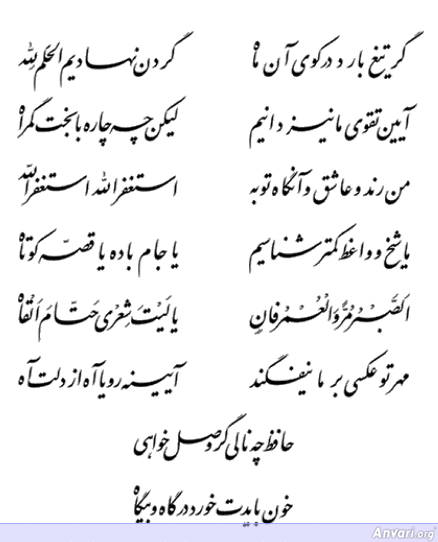 گر تیغ بارد در کوی آن ماه گردن نهادیم الحکم لله
آیین تقوی ما نیز دانیم لیکن چه چاره با بخت گمراه
من رند و عاشق و آنگاه توبه استغفرالله استغفرالله
ما شیخ و واعظ کمتر شناسیم یا جام باده یا قصّه کوتاه
اَلصَّبْرُ مُرٌّ وَالْعُمْرُ فانٍ یا لَیْتَ شِعْری حَتّامَ اَلْقاه
مهر تو عکسی بر ما نیفکند آیینه رویا آه از دلت آه
حافظ چه نالی گر وصل خواهی
خون بایدت خورد در گاه و بیگاه
Anvari.org